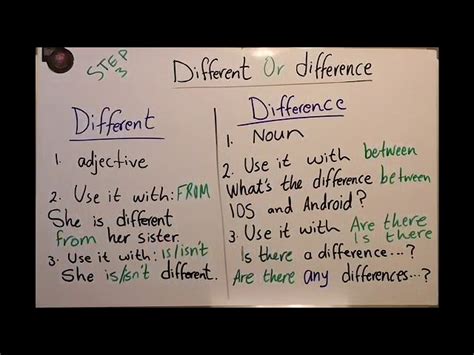 STEP 3
Different Or difference
Different
1. adjective
2. Use it with: FROM
She is different
from her sister.
3. Use it with: is/isn't
She is/isn't different.
Difference
1. Noun
2. Use it with between
What's the difference between
IOS and Android?
3. Use it with Are there
Is there
Is there a difference...?
Are there any differences...?